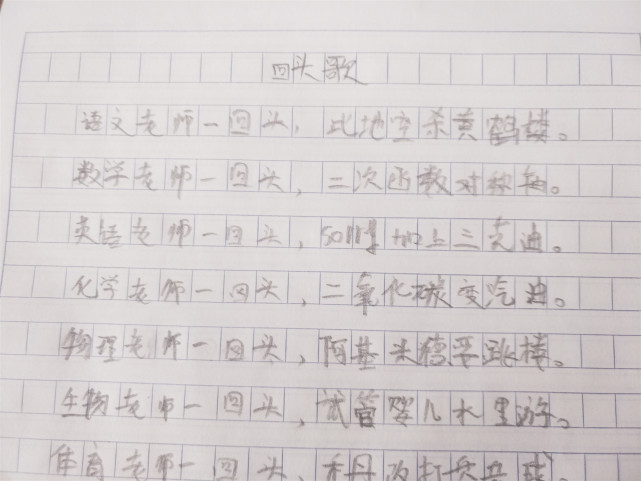 回头歌
语文老师一回头，此地空杀黄鹤楼。
数学老师一回头，二次函数对称轴。
英语老师一回头，sorry加上三克油。
化学老师一回头，二氧化碳变汽油。
物理老师一回头，阿基米德要跳楼。
生物老师一回头，试管婴儿水里游。
体育老师一回头，乔丹改打乒乓球。